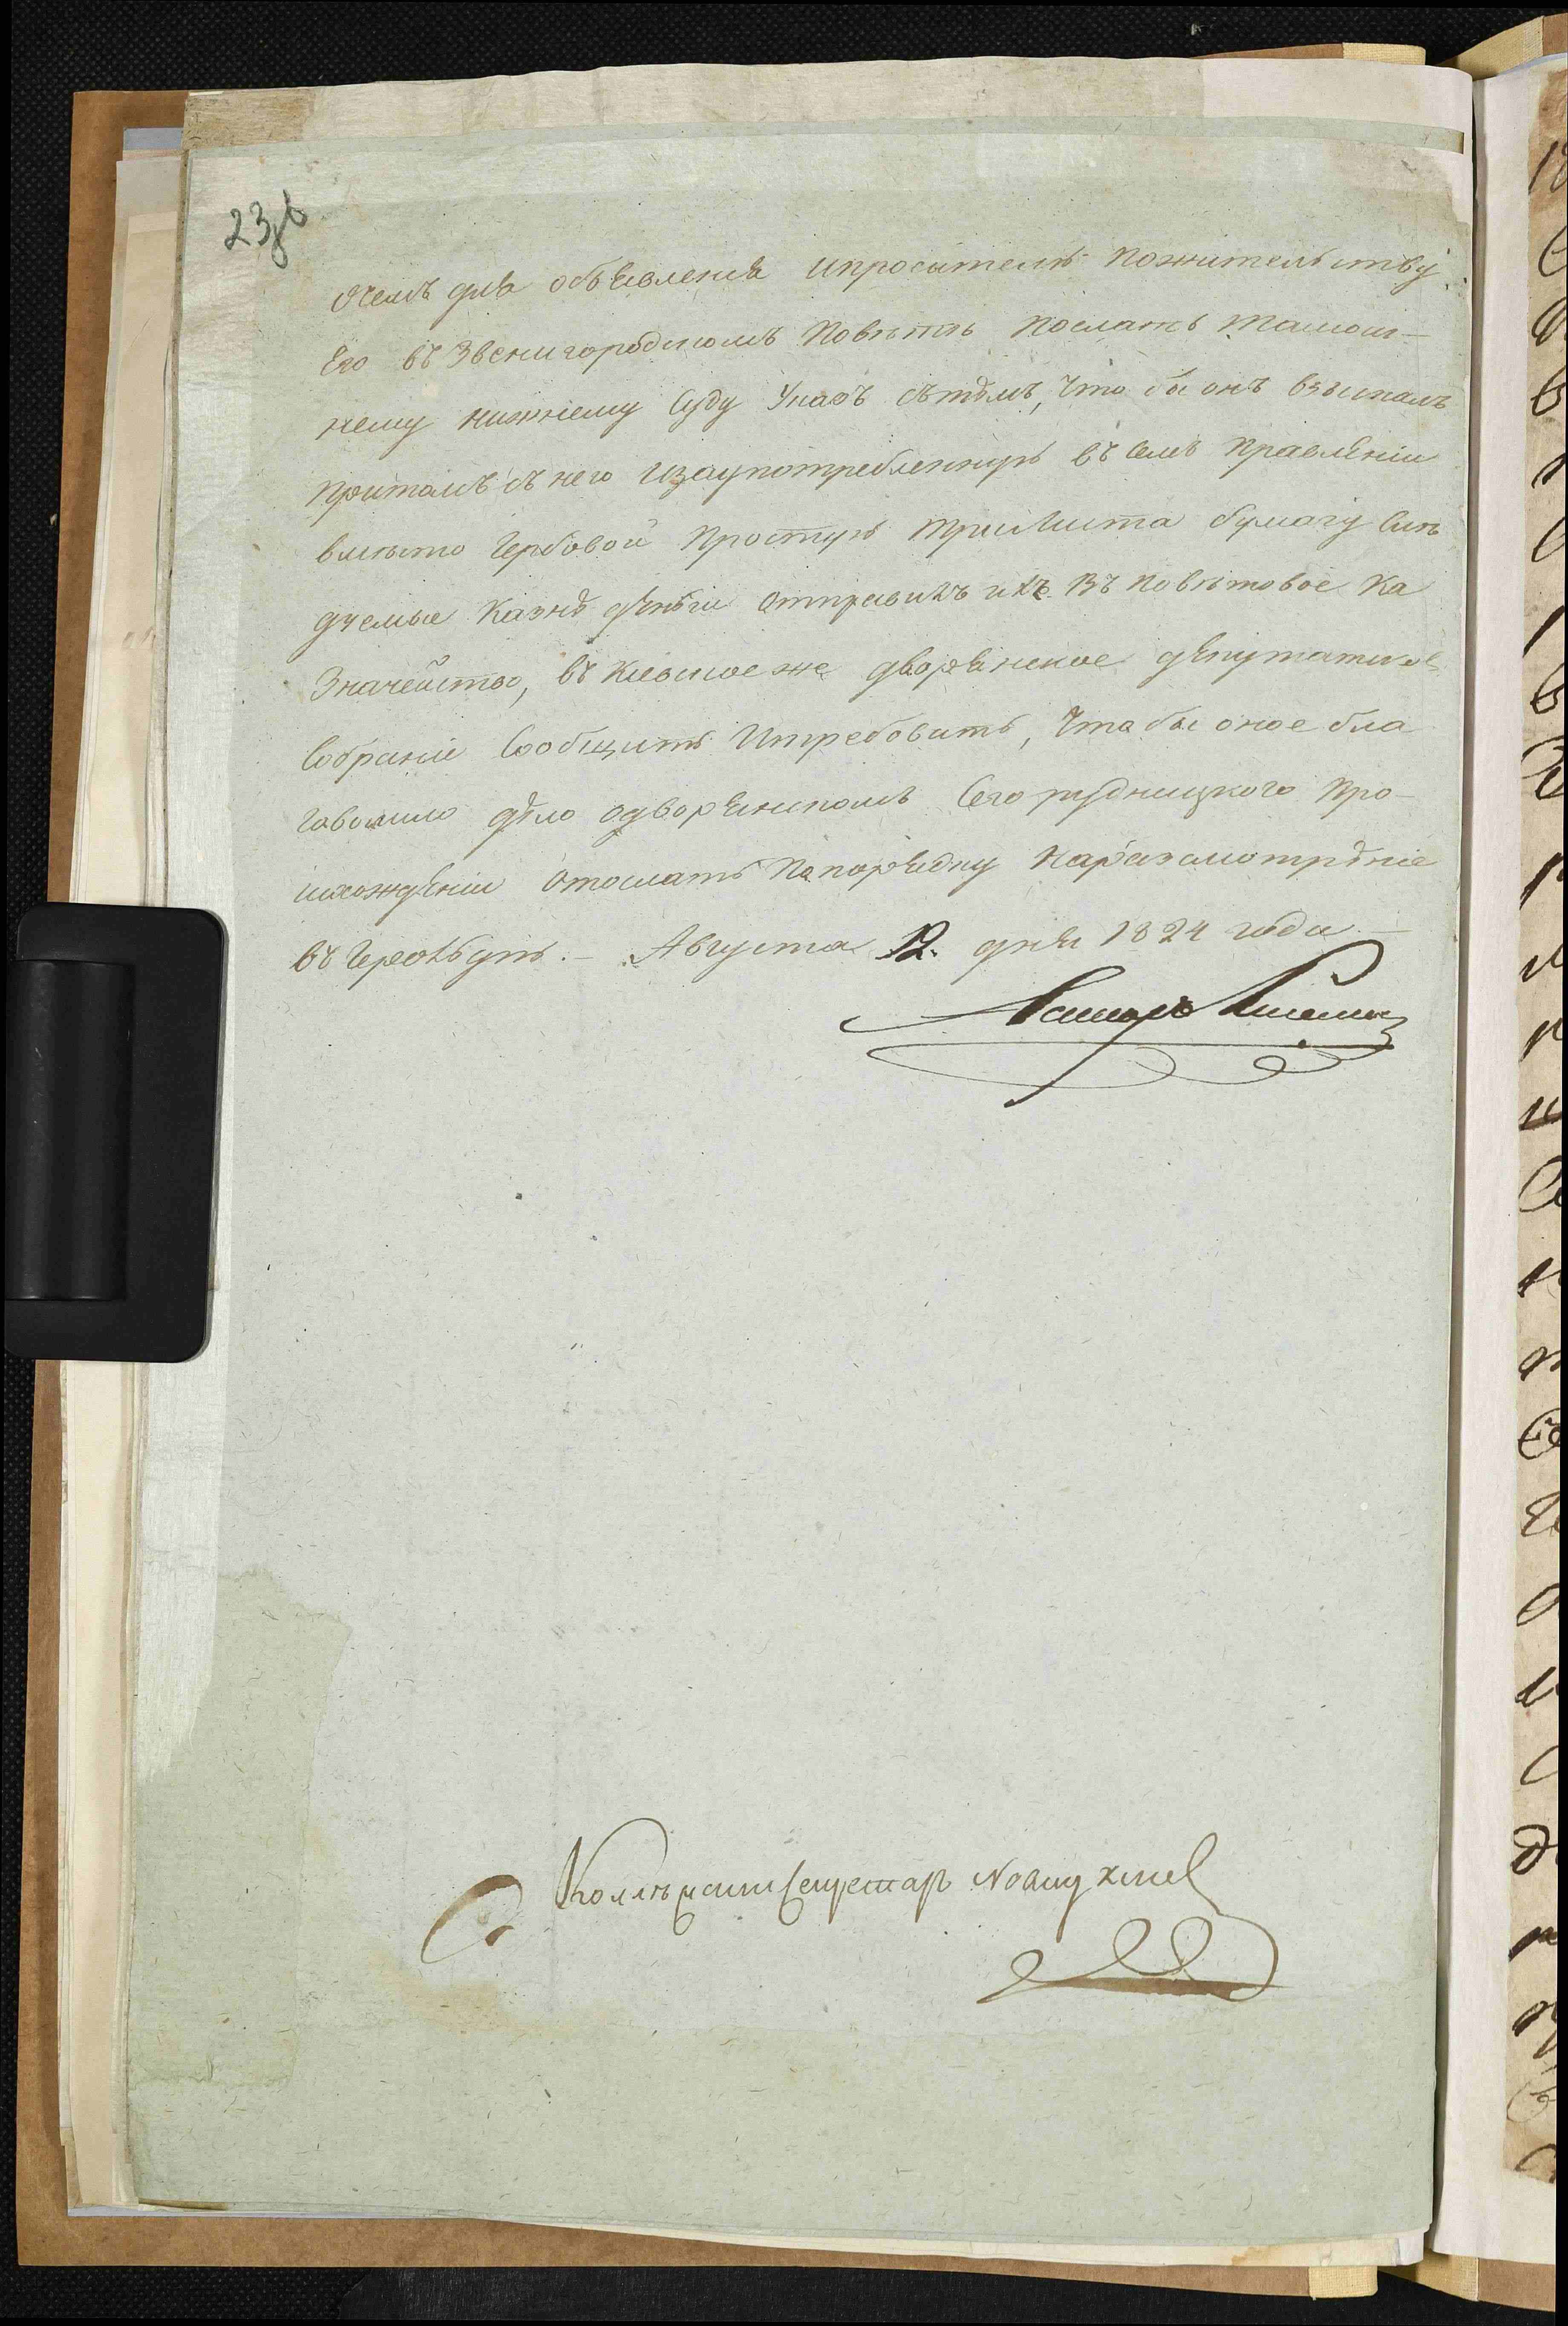 23зв
очемъ для объявленія ипросителю пожительству
Его въ Звенигородскомъ Повѣтѣ послать тамош-
нему нижнему Суду Указъ сътѣмъ, что бы онъ взыскалъ
притомъ съ него изаупотребленную въ семъ правленіи
вмѣсто Гербовой простую трилиста бумагу слѣ
дуемые Казнѣ деньги отправилъ ихъ въ повѣтовое Ка
значейство, въ Кіевское же дворянское депутатское
Собраніе Сообщить итребовать, что бы оное бла
говолило дѣло одворянскомъ Сего рудницкого про-
исхожденіи отослать попорядку наразсмотрѣніе
въ Герольдію. — Августа 12. дня 1824 года —
Коллежскій Секретарь